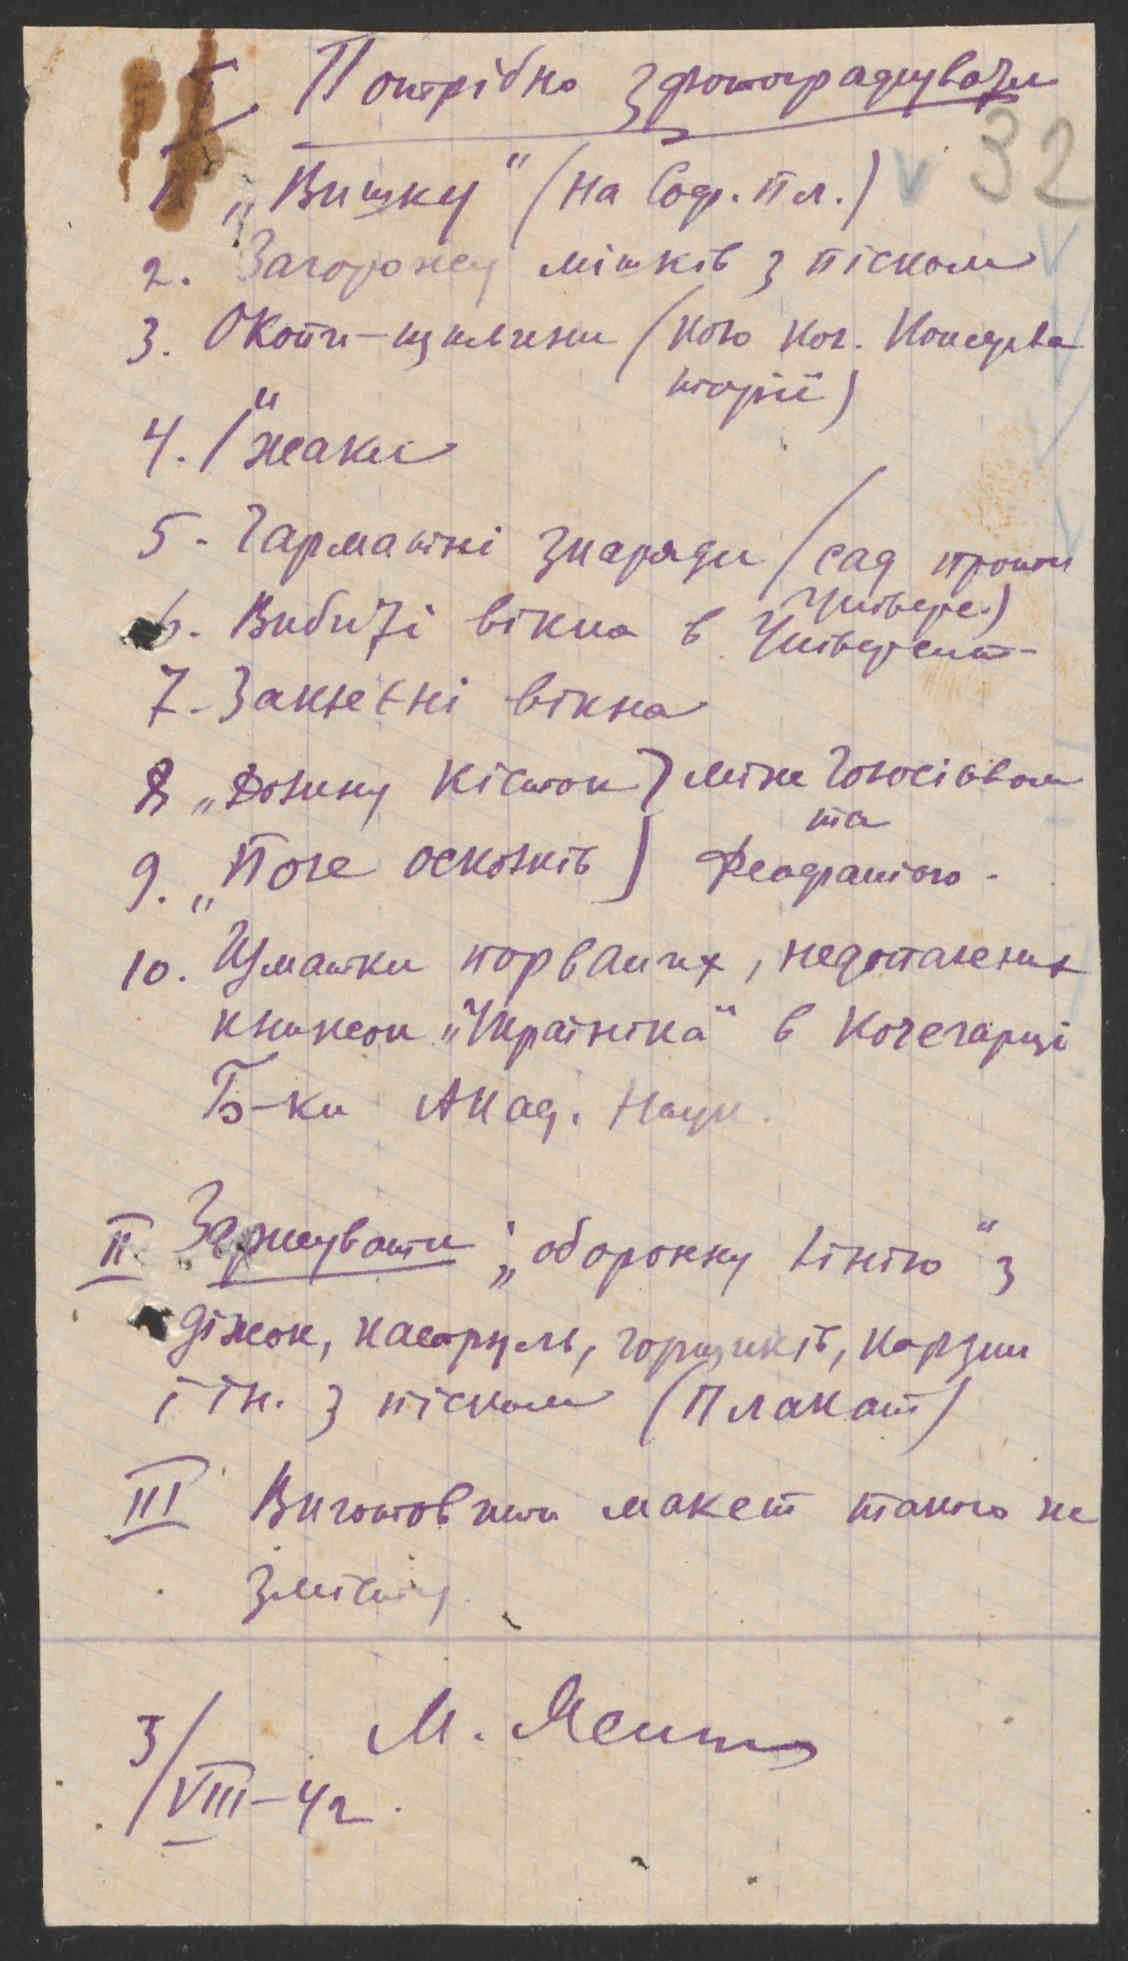 I. Потрібно зфотографувати
32
1. „Вишку" (на Соф. пл.)
2. Загорожу мішків з піском
3. Окопи-щілини (кол. Консерва
торії)
4. Їжаки
5. Гарматні снаряди (сад проти
Універс.)
6. Вибиті вікна в Університ-
7. Заклеєні вікна
8. „Долину кісток } між Голосієвом
та
9. „Поле осколків } Феофанією.
10. Шматки порваних, недопалених
книжок „Україніка" в кочегарці
Б-ки Акад. Наук.
II. Зарисувати „оборонну лінію" з
діжок, каструль, горщиків, корзин
і ін. з піском (Плакат)
III Виготовити макет такого же
змісту
М.
3/VIII-42.